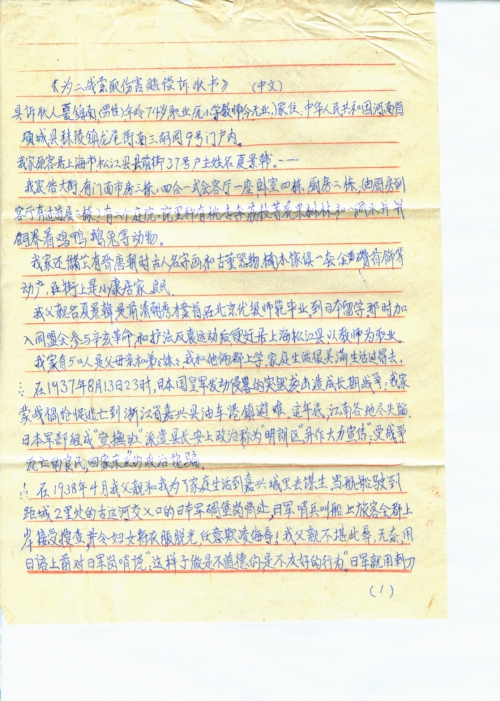 《为二战索取伤害赔偿诉状书》 (中文)
具诉状人夏镇南(男性)年龄74岁职业(原小学教师今无业)家住、中华人民共和国河南省
项城县秣陵镇龙尾街南三胡同9号门户内。
我家原容居上海市松江县县前街37号户主姓名夏景韩。
我家傍大街,有门面市房三栋,四合一式会客厅一座卧室四栋,厨房二栋,由厨房到
饲养着鸡鸭鹅兔等动物。
我家还储有晋唐朝时古人名字画和古董器物,楠木傢俱一套金首饰等
动产,在街上是小康居家
我父亲名夏景韩是前清朝秀才 在北京优级师范毕业到日本留学那时加
入同盟会参与辛亥革命和护法反袁运动后便迁居上海松江县以教师为职业。
我家有5口人是父母亲和弟、妹、我和他俩都上学,家庭生活很美满生活过得去。
∴ 在1937年8月13日23时,日本国皇军发动侵 的突 袭击造成长期战争,我家
蒙战祸 促逃亡到浙江省嘉兴县油车港镇避难。这年底,江南各地尽失陷,
日本军部组成"宣撫班"派遣县长安上政治称为"明朗区"并作大力宣传:受战争
流亡的良民,回家来 "的政治 骗。
∴ 在1938年4月我父亲和我为了家庭生活到嘉兴城里去谋生,当航船驶到
距城2里处的古运河交叉口的日本军碉堡岗哨处,日军哨兵叫船上旅客全都上
岸接受搜查,并令妇女将衣服脱光任意欺凌侮辱!我父亲不堪此辱,无奈,用
日语上前对日军岗哨说:"这样子做是不道德的是不友好的行为"日军就用刺刀
(1)